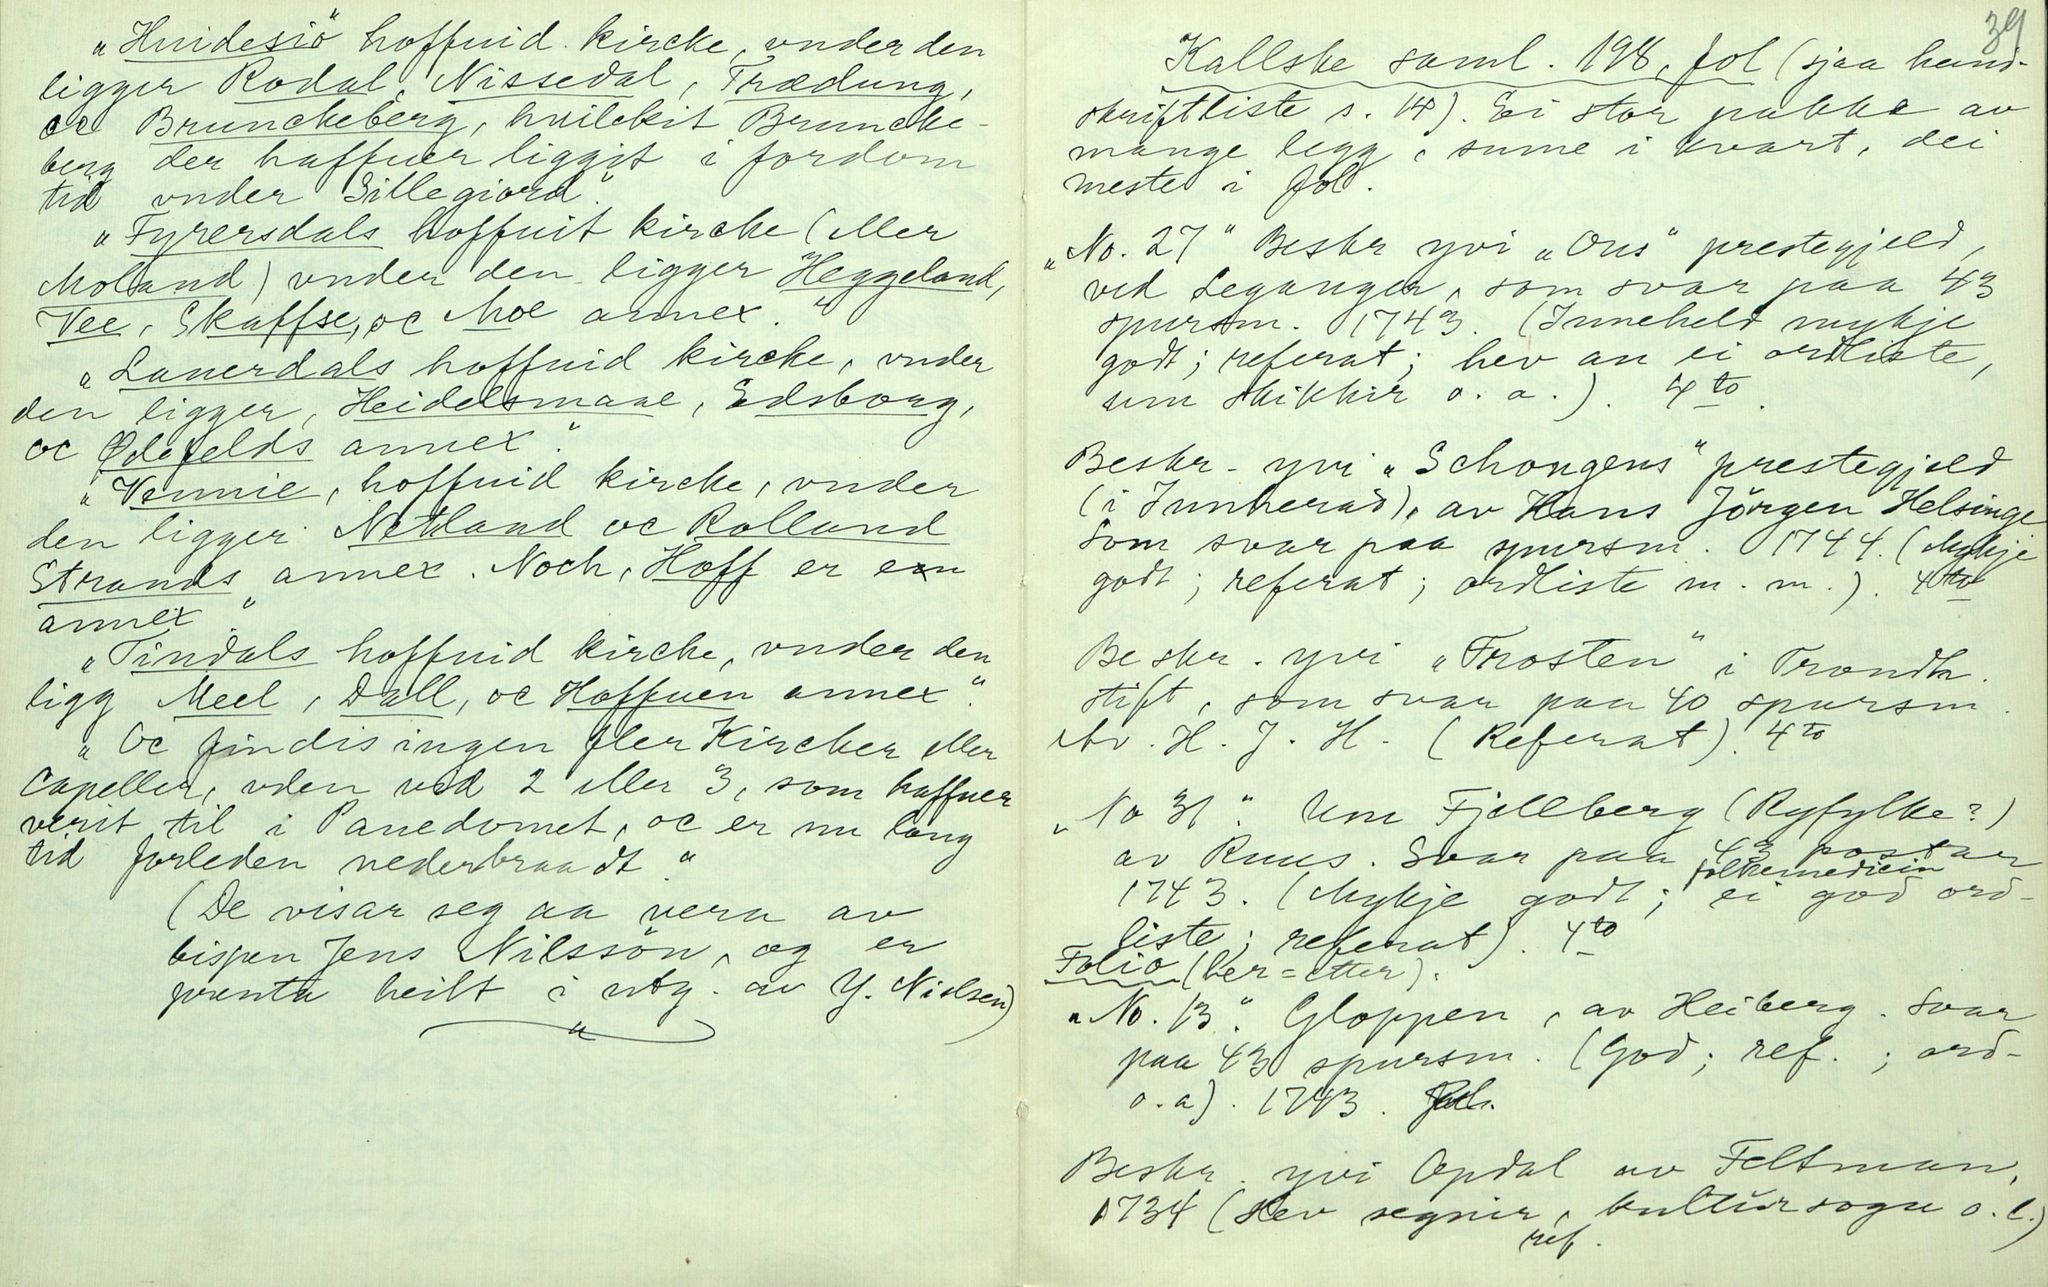 „Huidesiö" hoffuid kircke, vnder den
ligger Rodal, Nissedal, Trædung,
oc Brunckeberg, huilckit Bruncke-
berg der haffuer liggit i fordom
tid vnder Sillegiord".
„Fyrersdals hoffuit kircke (eller
Moland) vnder den ligger Heggeland,
Vee, Skaffse, oc Moe annex."
„Lauerdals hoffuid kircke, vnder
den ligger, Heidelsmaae, Edsborg,
oc Ødefelds annex."
„Vennie, hoffuid kircke, vnder
den ligger Nettland oc Rolland
Strands annex. Noch, Hoff er en
annex"
„Tindals hoffuid kircke, vnder den
ligg Meel, Dall, oc Hoffuen annex".
„Oc findis ingen fler Kircker eller
Capeller, vden ved 2 eller 3, som haffuer
verit til i Pauedomet, oc er nu lang
tid forleden nederbraadt."
(De visar seg aa vera av
bispen Jens Nilssön, og er
prenta heilt i utg. av Y. Nielsen)
39
Kallske saml. 198, fol (sjaa hand-
skriftliste s. 14). Ei stor pakke av
mange legg, sume i kvart, dei
meste i fol.
„No. 27" Beskr yvi „Ous" prestegjeld,
ved Leganger, som svar paa 43
spursm. 1743. (Inneheld mykje
godt; referat; hev an ei ordliste,
um skikkir o. a.). 4to.
Beskr. yvi „Schongens" prestegjeld
(i Innherad), av Hans Jörgen Helsinge
Som svar paa spursm. 1744. (Mykje
godt; referat; ordliste m. m.). 4to
Beskr. yvi „Frosten" i Trondh.
stift, som svar paa 40 spursm.
Av. H. J. H. (Referat). 4to
„No 31". Um Fjellberg (Ryfylke?)
av Ruus. Svar paa 43 postar
folkemedicin
1743. (Mykje godt; ei god ord-
liste; referat). 4to
Folio (her-etter).
„No. 13". Gloppen, av Heiberg. Svar
paa 43 spursm. (God; ref.; ord-
o. a). 1743.
Beskr. yvi Opdal av Feltman,
1734 (Hev segnir, kultursogu o. l.)
ref.